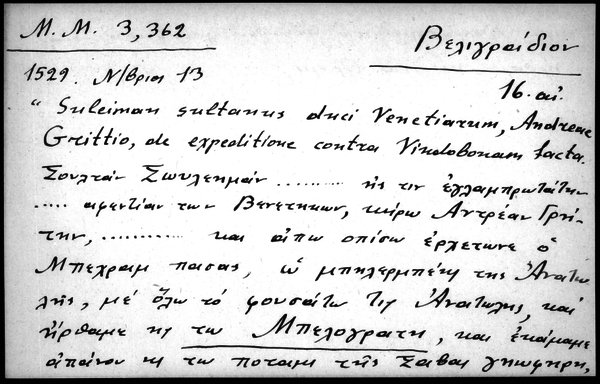 M. M. 3, 362
Βελιγραίδιον
1529. Ν/βριου 13
16. αἰ.
“ Suleiman sultanus duci Venetiarum, Andreae
Grittio, de expeditione contra Vindobonam facta.
Σουλτάν Σωυλεημάν .......... ης τιν ἐγλαμπρωτάτην
..... αφεντίαν των Βενετηκων, κύρω Αντρέαν Γρή-
την, ........... και απω οπίσω ἐρχετωνε ὁ
Μπεχραμ πασας, ὡ μπηλερμπέης της Ἀνατω
λῆς, μέ ὅλω τό φουσάτω τις Ἀνατωλης, καί
ἤρθαμε ης τω Μπελογρατη, και ἐκάμαμε
απάνου ης τω ποταμι τῆς Σαβας γηωφηρη,